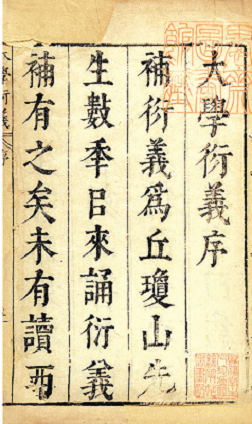 大學衍義序
補衍義爲丘瓊山先
生數季㠯來誦衍義
補有之矣未有讀西
大學衍義 序